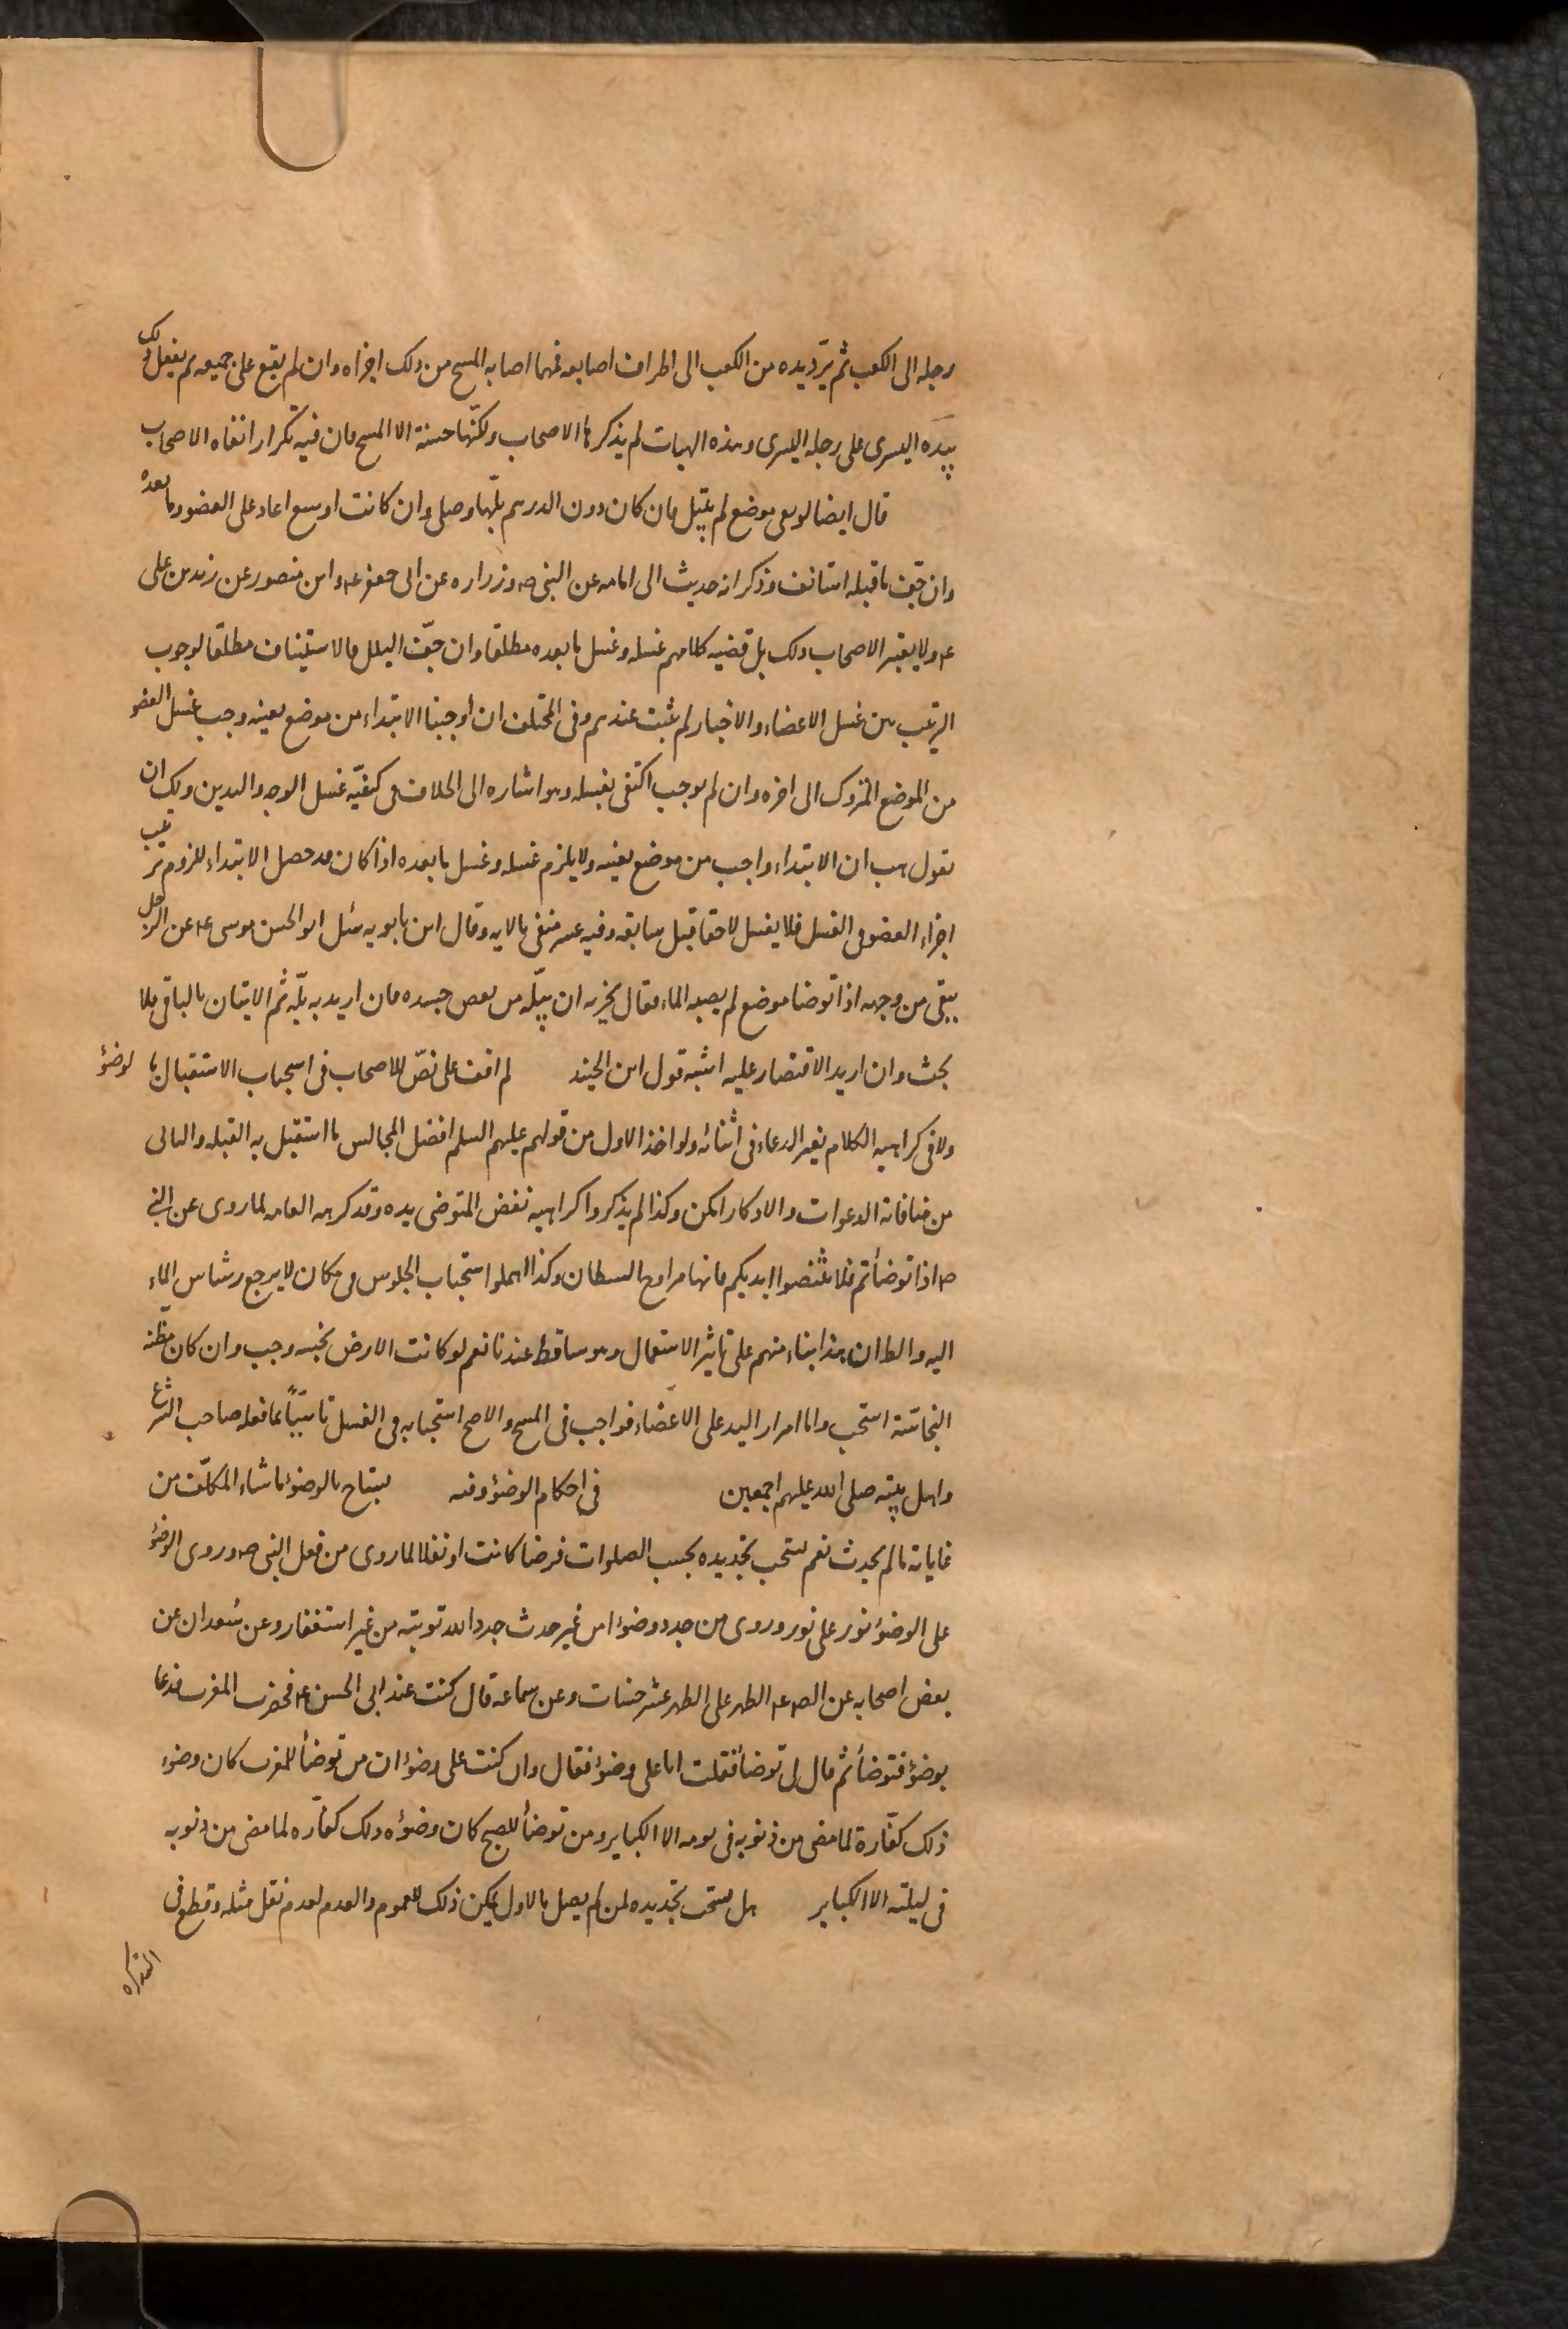 رجله الى الكعب ثم يرّد يده من الكعب الى اطراف اصابعه فمهما اصابه المسح من ذلك اجزاه وان لم يقع على جميعه ثم يفعل ذلك
بيده اليسرى على رجله اليسرى وهذه الهيات لم يذكرها الاصحاب ولكنّها حسنة الا المسح فان فيه تكرارا نفاه الاصحاب
قال ايضا لو بقى موضع لم يبتل فان كان دون الدرهم بلّها وصلى وان كانت اوسع اعاد على العضو وما بعده
وان جّف ما قبله استانف وذكر انه حديث ابى امامه عن النبى ص وزراره عن ابى جعفر ع وابن منصور عن زيد بن على
ع ولا يعتبر الاصحاب ذلك بل قضيه كلامهم غسله وغسل ما بعده مطلقا وان جّف البلل فالاستيناف مطلقا لوجوب
الترتيب بين غسل الاعضاء والاخبار لم تثبت عندهم وفى المختلف ان أوجبنا الابتداء من موضع بعينه وجب غسل العضو
من الموضع المتروك الى اخره وان لم نوجب اكتفى بغسله وهو اشاره الى الخلاف فى كيفيّه غسل الوجه واليدين ولك ان
تقول هب ان الابتداء واجب من موضع بعينه ولا يلزم غسله وغسل ما بعده اذا كان قد حصل الابتداء للزوم ترتيب
اجزاء العضو فى الغسل فلا يغسل لاحقا قبل سابقه وفيه عسر منفى بالايه وقال ابن بابويه سئل ابو الحسن موسى ع عن الرجل
يبقى من وجهه اذا توضا موضع لم يصبه الماء فقال يجزيه ان يبلّه من بعض جسده فان اريد به بلّه ثم الاتيان بالباقى فلا
بحث وان اريد الاقتصار عليه اشبه قول ابن الجنيد لم اقف على نصّ للاصحاب فى استحباب الاستقبال بالوضوٴ
ولا فى كراهيه الكلام بغير الدعاء فى اثنائه ولو اخذ الاول من قولهم عليهم السلم افضل المجالس ما استقبل به القبله والثانى
من منافاته الدعوات والاذكار امكن وكذا لم يذكروا كراهيه نفض المتوضى يده وقد كرهه العامه لما روى عن النبى
ص اذا توضأتم فلا تنفضوا ايديكم فانها مراوح الشيطان وكذا اهملوا استحباب الجلوس فى مكان لا يرجع رشاش الماء
اليه والظ ان هذا بناء منهم على تاثير الاستعمال وهو ساقط عندنا نعم لو كانت الارض نجسه وجب وان كان مظنّه
النجاسة استحب واما امرار اليد على الاعضاء فواجب فى المسح والاصح استحبابه فى الغسل تاسّياً بما فعله صاحب الشرع
واهل بيته صلى الله عليهم اجمعين فى احكام الوضوٴ وفيه يستباح بالوضوٴ ما شاء المكلّف من
غاياته ما لم يحدث نعم يستحب تجديده بحسب الصلوات فرضا كانت او نفلا لما روى من فعل النبى ص وروى الوضوٴ
على الوضوٴ نور على نور وروى من جدد وضوٴا من غير حدث جدد الله توبته من غير استغفار وعن سعدان عن
بعض اصحابه عن الص ع الطهر على الطهر عشر حسنات وعن سماعه قال كنت عند ابى الحسن ع فحضرت المغرب فدعا
بوضوٴ فتوضأ ثم قال لى توضأ فقلت انا على وضوٴ فقال وان كنت على وضوٴ ان من توضأ للمغرب كان وضوٴه
ذلك كفّارة لما مضى من ذنوبه فى يومه الا الكباير ومن توضأ للصبح كان وضوٴه ذلك كفّاره لما مضى من ذنوبه
فى ليلته الا الكباير هل يستحب تجديده لمن لم يصل بالاول يمكن ذلك للعموم والعدم لعدم نقل مثله وقطع فى
التذكره